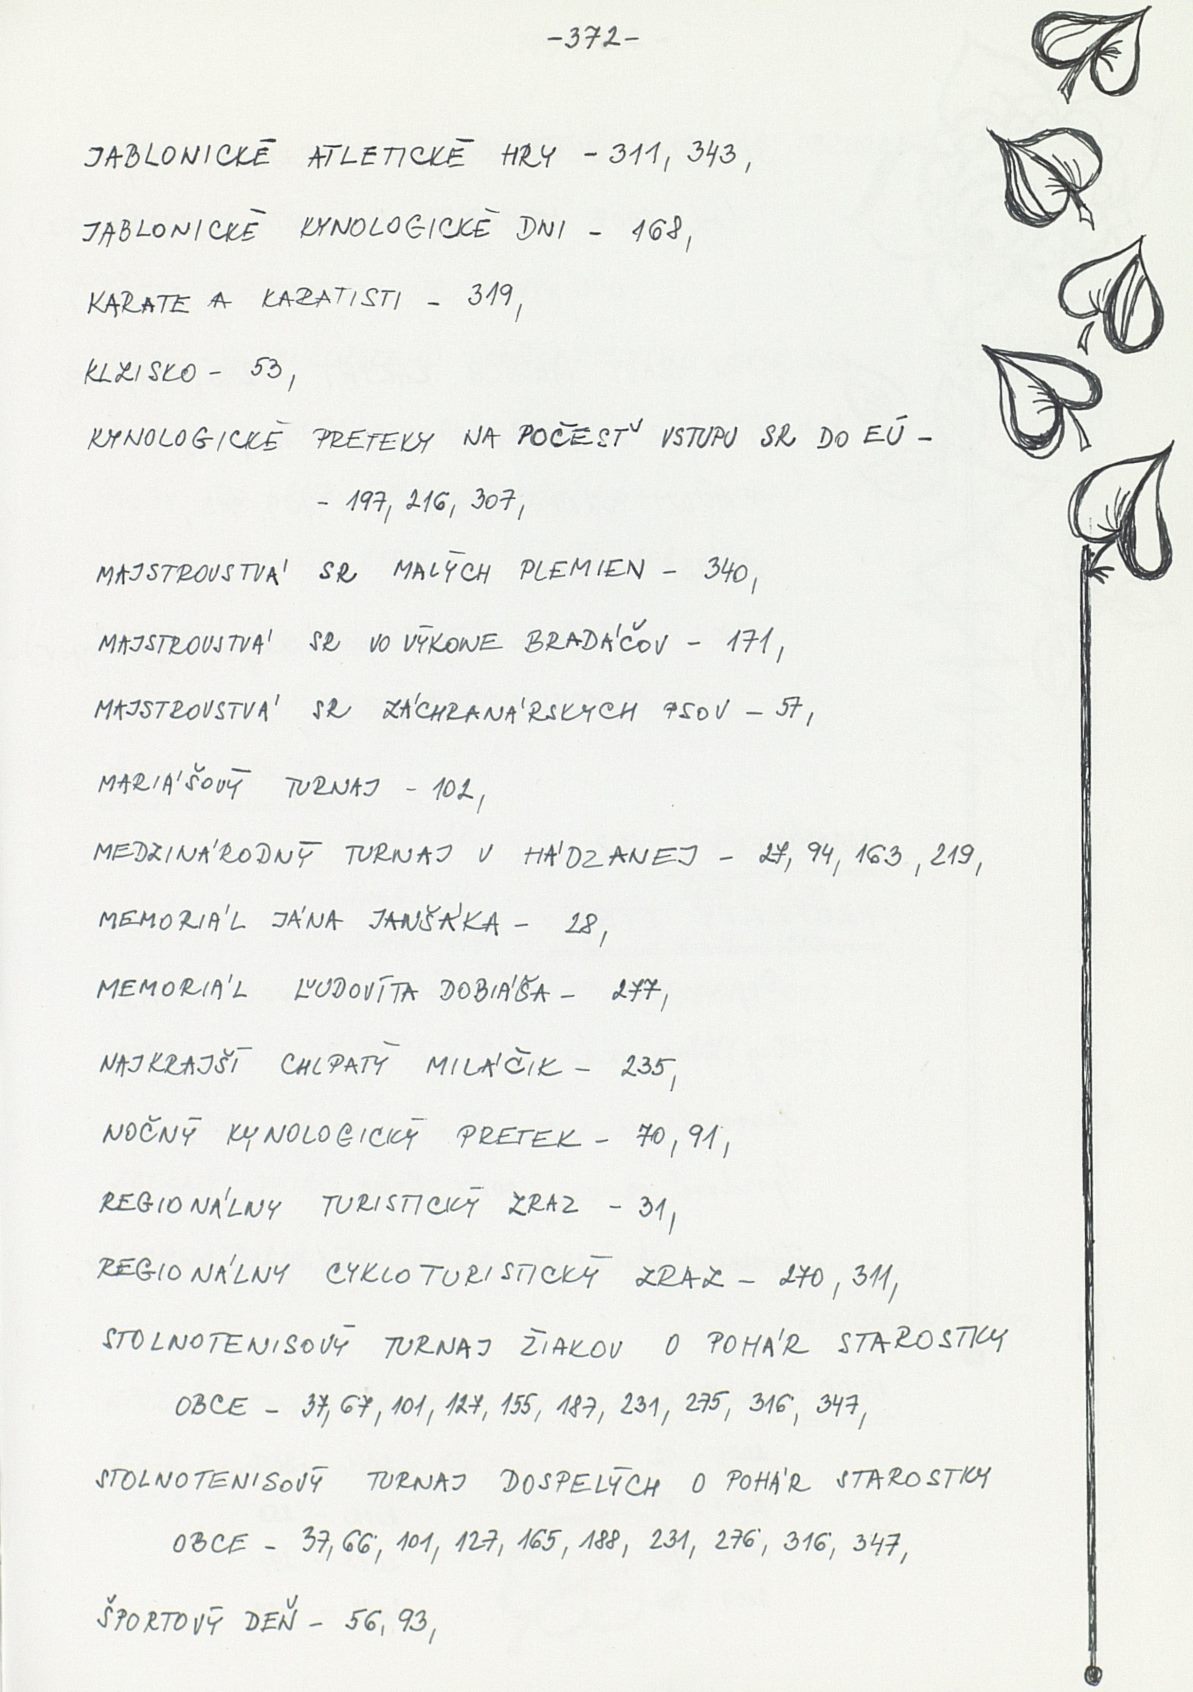 -372-
JABLONICKÉ ATLETICKÉ HRY - 311, 343,
JABLONICKÉ KYNOLOGICKÉ DNI - 168,
KARATE A KARATISTI - 319,
KLZISKO - 53,
KYNOLOGICKÉ PRETEKY NA POČESŤ VSTUPU SR DO EÚ -
- 197, 216, 307,
MAJSTROVSTVÁ SR MALÝCH PLEMIEN - 340,
MAJSTROVSTVÁ SR VO VÝKONE BRADÁČOV - 171,
MAJSTROVSTVÁ SR ZÁCHRANÁRSKYCH PSOV - 57,
MARIÁŠOVÝ TURNAJ - 102,
MEDZINÁRODNÝ TURNAJ V HÁDZANEJ - 27, 94, 163, 219,
MEMORIÁL JÁNA JANŠÁKA - 28,
MEMORIÁL ĽUDOVÍTA DOBIÁŠA - 277,
NAJKRAJŠÍ CHLPATÝ MILÁČIK - 235,
NOČNÝ KYNOLOGICKÝ PRETEK - 70, 91,
REGIONÁLNY TURISTICKÝ ZRAZ - 31,
REGIONÁLNY CYKLOTURISTICKÝ ZRAZ - 270, 311,
STOLNOTENISOVÝ TURNAJ ŽIAKOV O POHÁR STAROSTKY
OBCE - 37, 67, 101, 127, 155, 187, 231, 275, 316, 347,
STOLNOTENISOVÝ TURNAJ DOSPELÝCH O POHÁR STAROSTKY
OBCE - 37, 66, 101, 127, 165, 188, 231, 276, 316, 347,
ŠPORTOVÝ DEŇ - 56, 93,